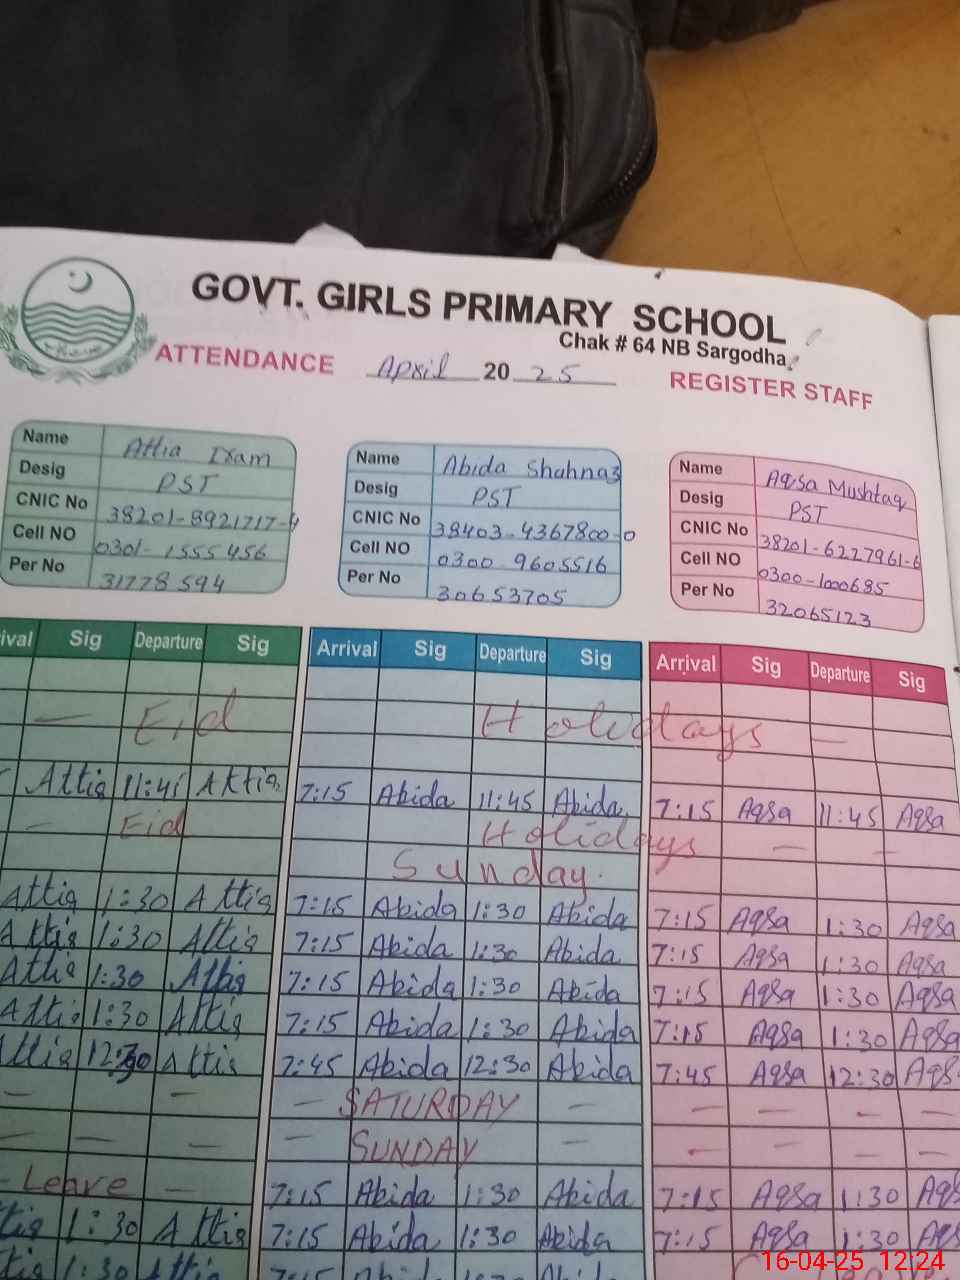 GOVT. GIRLS PRIMARY SCHOOL
Chak # 64 NB Sargodha
ATTENDANCE April 20 25 REGISTER STAFF
Name Attia Ixam
Desig PST
CNIC No 38201-8921717-4
Cell NO 0301-1555456
Per No 31778594
Name Abida Shahnaz
Desig PST
CNIC No 38403-4367800-0
Cell NO 0300-9605516
Per No 30653705
Name Aqsa Mushtaq
Desig PST
CNIC No 38201-6227961-6
Cell NO 0300-1000685
Per No 32065123
ival Sig Departure Sig Arrival Sig Departure Sig Arrival Sig Departure Sig
— Eid Holidays —
Attia 11:45 Attia 7:15 Abida 11:45 Abida 7:15 Aqsa 11:45 Aqsa
— Eid Holidays — —
Sunday.
Attia 1:30 Attia 7:15 Abida 1:30 Abida 7:15 Aqsa 1:30 Aqsa
Attia 1:30 Attia 7:15 Abida 1:30 Abida 7:15 Aqsa 1:30 Aqsa
Attia 1:30 Attia 7:15 Abida 1:30 Abida 7:15 Aqsa 1:30 Aqsa
Attia 1:30 Attia 7:15 Abida 1:30 Abida 7:15 Aqsa 1:30 Aqsa
Attia 12:30 Attia 7:45 Abida 12:30 Abida 7:45 Aqsa 12:30 Aqsa
— — — SATURDAY — — — — —
— — — — SUNDAY — — — — —
- Leave — 7:15 Abida 1:30 Abida 7:15 Aqsa 1:30 Aqs
tia 1:30 Attia 7:15 Abida 1:30 Abida 7:15 Aqsa 1:30 Aqs
tia 1:30 Attia 7:15 Abida
16-04-25 12:24